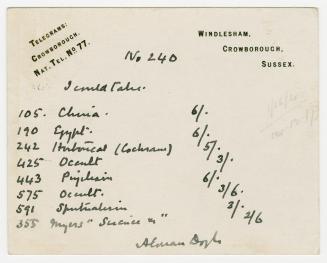 TELEGRAMS:
CROWBOROUGH.
NAT. TEL. NO. 77.
WINDLESHAM,
CROWBOROUGH,
SUSSEX.
No 240
I could take.
105. China. 6/.
190 Egypt. 6/.
242 Historical (Cochrane) 5/.
425 Occult 3/.
443 Pugilism 6/.
575 Occult. 3/6
591 Spiritualism 2/.
355 Myers "Science &" 2/6
A Conan Doyle